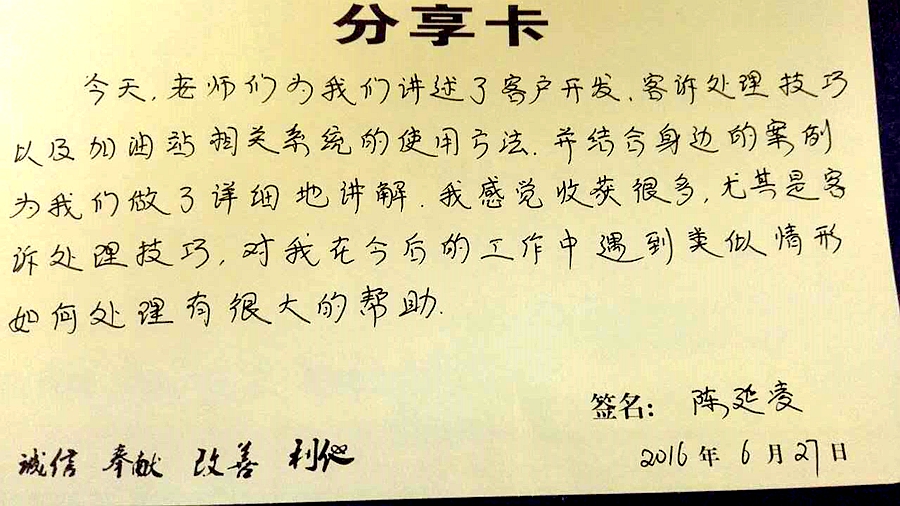 分享卡
今天,老师们为我们讲述了客户开发,客诉处理技巧
以及加油站相关系统的使用方法.并结合身边的案例
为我们做了详细地讲解.我感觉收获很多,尤其是客
诉处理技巧,对我在今后的工作中遇到类似情形
如何处理有很大的帮助.
签名:陈延凌
2016年6月27日
诚信 奉献 改善 利他